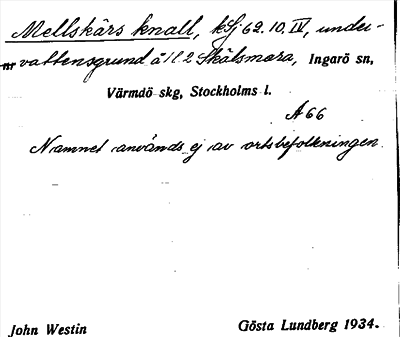 Mellskärs knall, kSj 62.10.IV, under-
vattensgrund å 1l 2 Skälsmara, Ingarö sn,
Värmdö skg, Stockholms l.
A 66
Namnet används ej av ortsbefolkningen.
John Westin
Gösta Lundberg 1934.